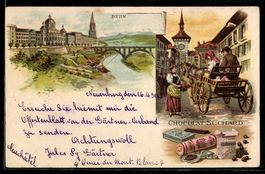 BERN
CHOCOLAT SUCHARD
Neuenburg den 16.4.
Ersuche Sie hiemit mir die
Offertenblatt von der Gärtner-Verband
zu senden.
Achtungsvoll
Jules Gärtner
Neuchâtel
4 Quai du Mont. Blanc 4